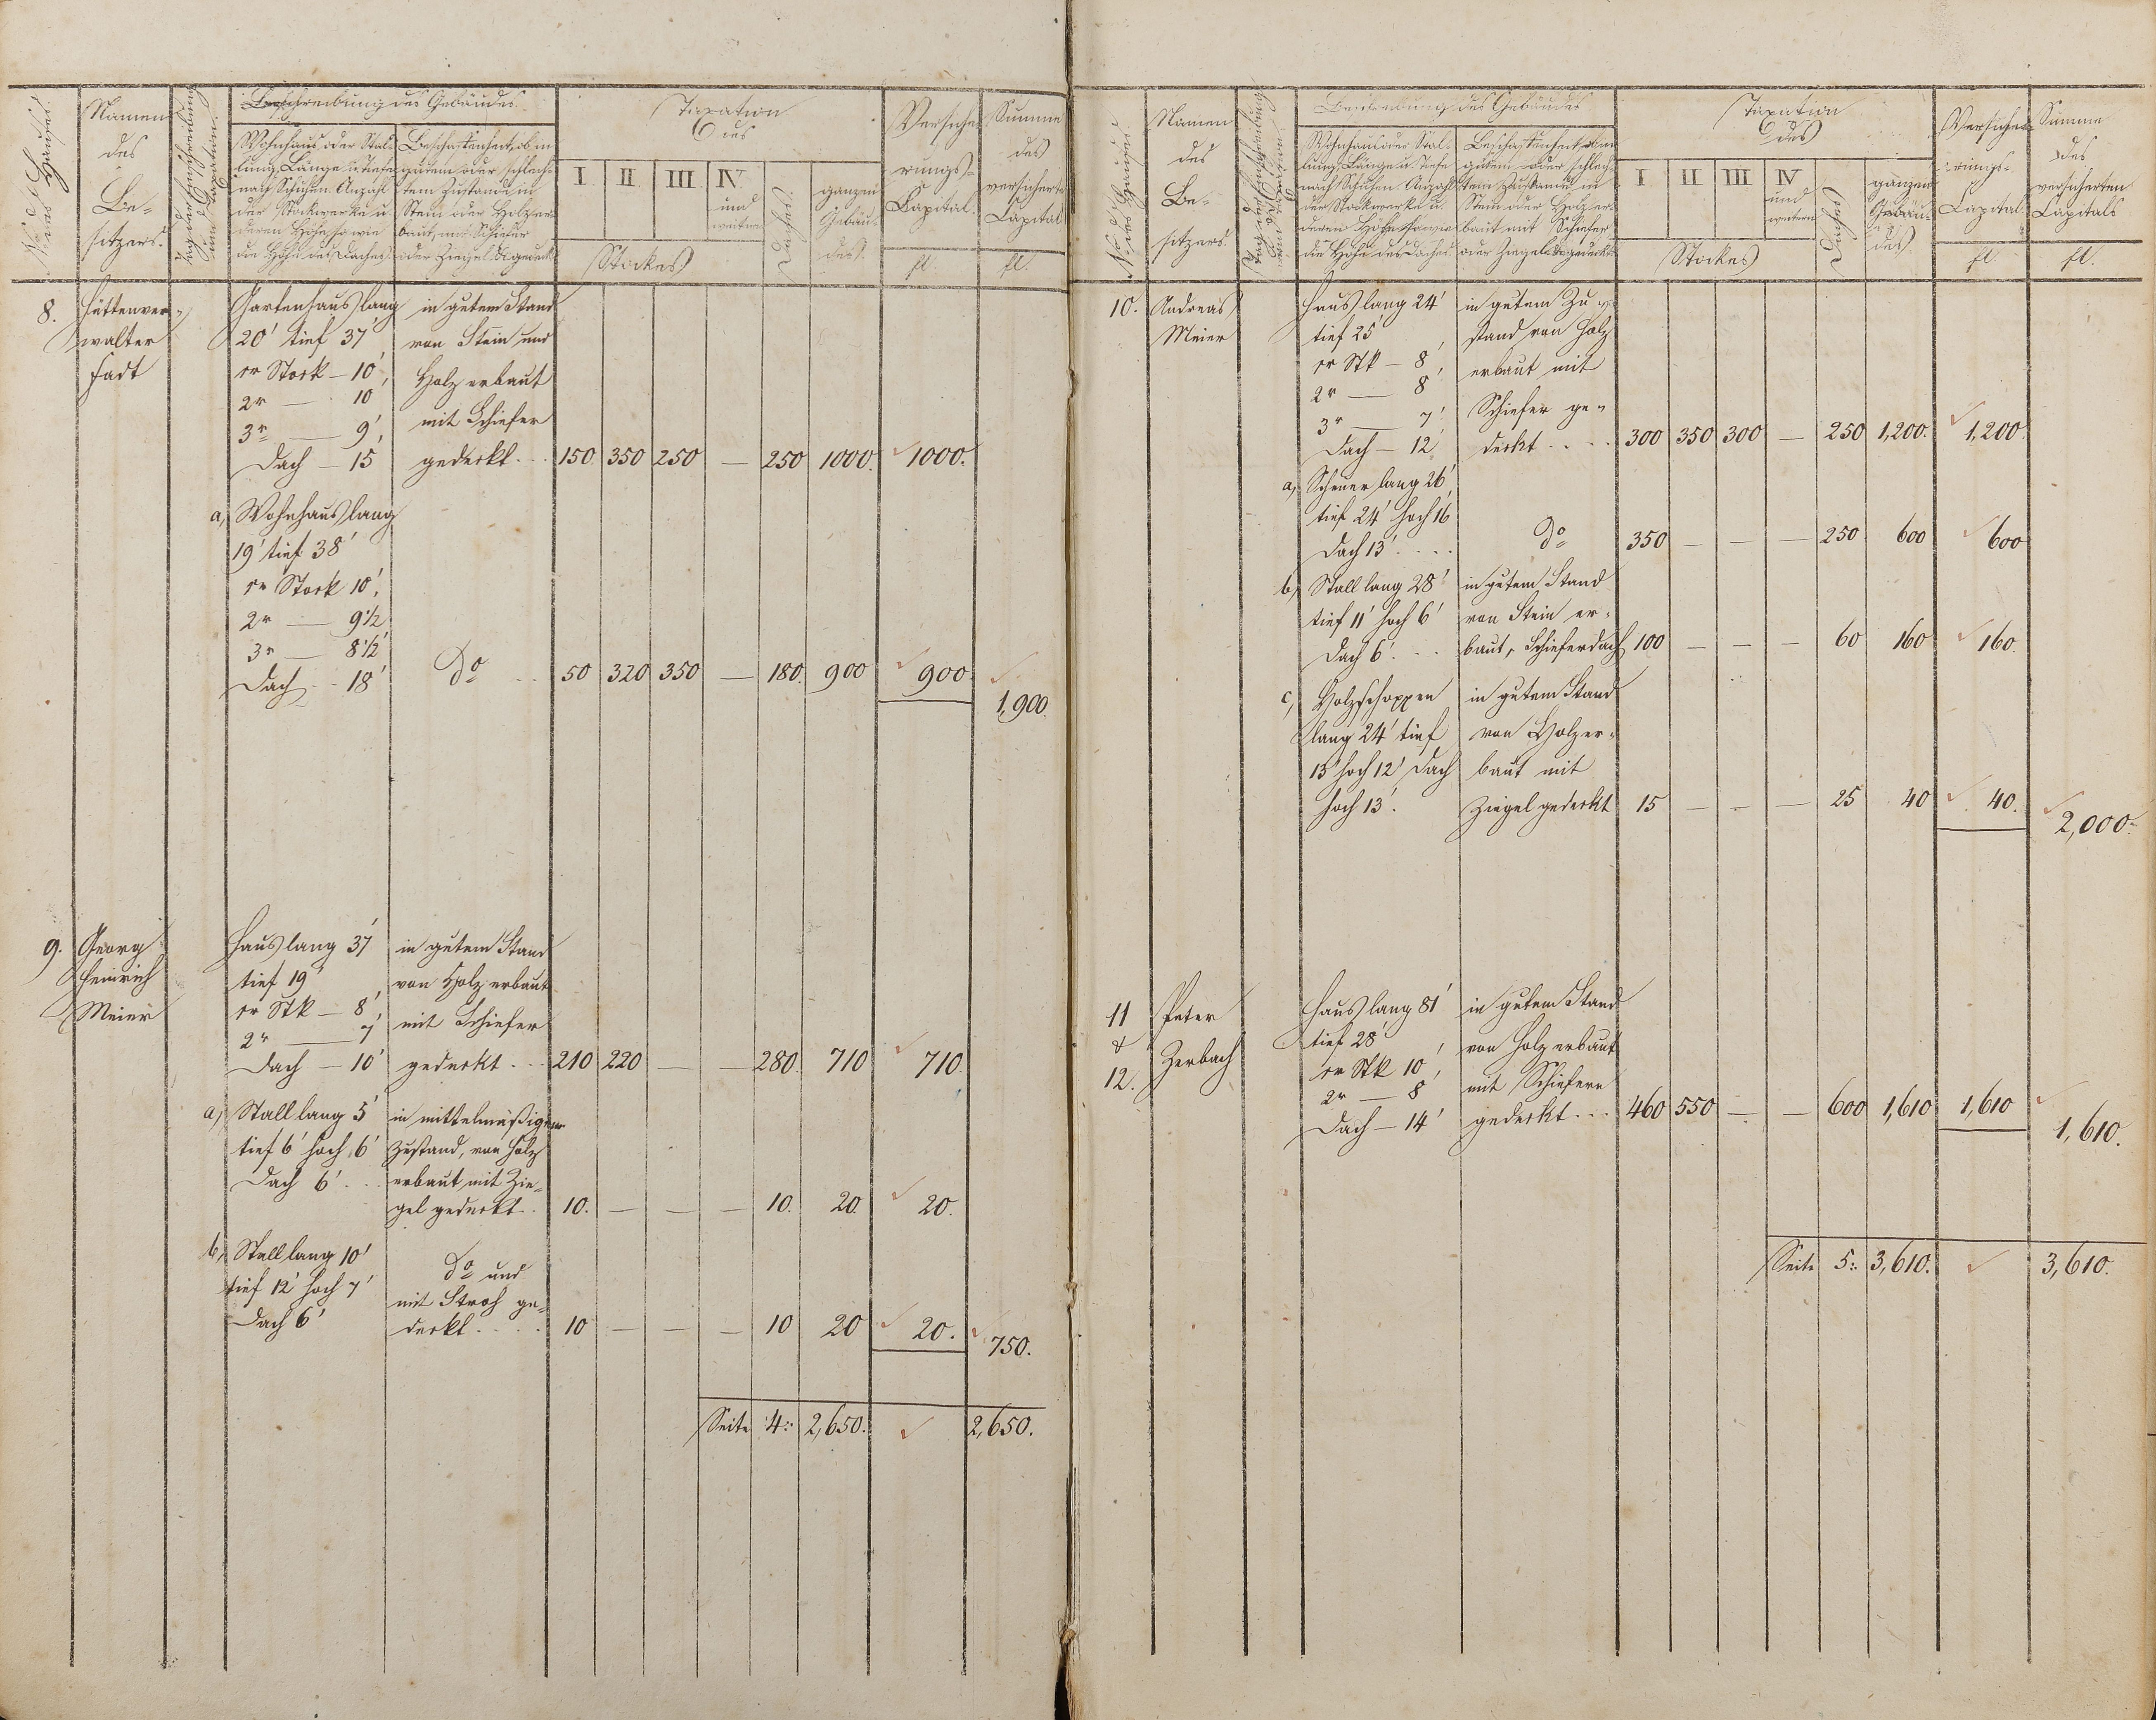 No. des Hauses.
Namen
des
Be-
sitzers.
Tag der Einschreibung
und Taxation.
Beschreibung des Gebäudes.
Wohnhaus oder Stal-
lung, Länge u. Tiefe
nach Schuhen. Anzahl
der Stockwerke u.
deren Höhe so wie
die Höhe des Daches.
Beschaffenheit, ob in
gutem oder schlech-
tem Zustande, in
Stein oder Holz er-
baut, mit Schiefer
oder Ziegel &c gedeckt.
Taxation
des
I II III IV
und
weitern
Stockes
Daches.
ganzen
Gebäu-
des.
Versiche-
rungs-
Capital.
fl.
Summe
des
versicherten
Capitals
fl.
8. Hüttenver-
walter
Fadt
Gartenhaus lang
20' tief 37'
1r Stock – 10'
2r — 10'
3r — 9'
Dach – 15'
in gutem Stand
von Stein und
Holz erbaut
mit Schiefer
gedeckt... 150 350 250 — 250 1000. 1000.
a, Wohnhaus lang
19' tief 38'
1r Stock 10'
2r — 9 1/2'
3r — 8 1/2'
Dach... 18' do .. 50 320 350 — 180. 900 900
1,900.
9. Georg
Heinrich
Meier
Haus lang 37'
tief 19'
1r Stk – 8'
2r — 7'
Dach – 10'
in gutem Stand
von Holz erbaut
mit Schiefer
gedeckt... 210 220 — — 280. 710 710.
a, Stall lang 5'
tief 6' hoch 6'
Dach 6'...
in mittelmäßigem
Zustand, von Holz
erbaut, mit Zie-
gel gedeckt.. 10. — — — 10. 20. 20.
b, Stall lang 10'
tief 12' hoch 7'
Dach 6'
do und
mit Stroh ge-
deckt.... 10 — — — 10 20 20.
750.
Seite 4: 2,650. 2,650.
No. des Hauses.
Namen
des
Be-
sitzers.
Tag der Einschreibung
und Taxation.
Beschreibung des Gebäudes
Wohnhaus oder Stal-
lung, Länge u. Tiefe
nach Schuhen. Anzahl
der Stockwerke u.
deren Höhe so wie
die Höhe des Daches.
Beschaffenheit, ob in
gutem oder schlech-
tem Zustande, in
Stein oder Holz er-
baut mit Schiefer
oder Ziegel &c gedeckt.
Taxation
des
I II III IV
und
weitern
Stockes
Daches
ganzen
Gebäu-
des.
Versiche-
rungs-
Capital
fl.
Summe
des
versicherten
Capitals
fl.
10. Andreas
Meier
Haus lang 24'
tief 25'
1r Stk – 8'
2r — 8'
3r — 7'
Dach – 12'
in gutem Zu-
stand von Holz
erbaut mit
Schiefer ge-
deckt.... 300 350 300 — 250 1,200. 1,200.
a, Scheuer lang 26'
tief 24' hoch 16'
Dach 13'.... do 350 — — — 250 600 600
b, Stall lang 28'
tief 11' hoch 6'
Dach 6'...
in gutem Stand
von Stein er-
baut, Schieferdach 100 — — — 60 160 160.
c, Holzschoppen
lang 24' tief
13' hoch 12' Dach
hoch 13'.
in gutem Stand
von Holz er-
baut mit
Ziegel gedeckt 15 — — — 25 40 40.
2,000.
11
&
12.
Peter
Zerbach
Haus lang 81'
tief 28'
1r Stk 10'
2r — 8'
Dach – 14'
in gutem Stand
von Holz erbaut
mit Schiefern
gedeckt... 460 550 — — 600 1,610 1,610
1,610.
Seite 5: 3,610. 3,610.